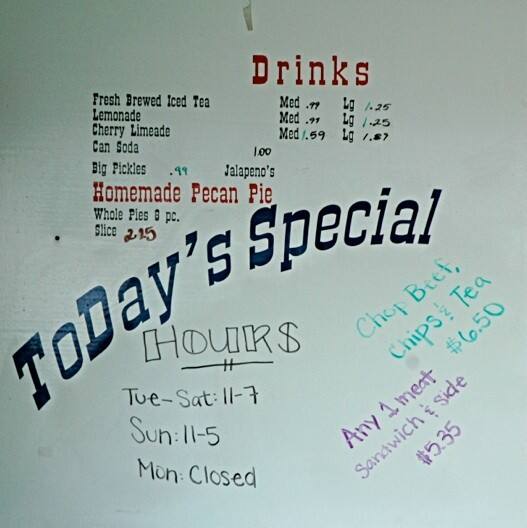 Drinks
Fresh Brewed Iced Tea Med .99 Lg 1.25
Lemonade Med .99 Lg 1.25
Cherry Limeade Med 1.59 Lg 1.87
Can Soda 1.00
Big Pickles .99 Jalapeno's
Homemade Pecan Pie
Whole Pies 8 pc.
Slice 2.25
ToDay's Special
HOURS
Tue-Sat: 11-7
Sun: 11-5
Mon: Closed
Chop Beef,
Chips & Tea
$6.50
Any 1 meat
Sandwich & side
$5.35